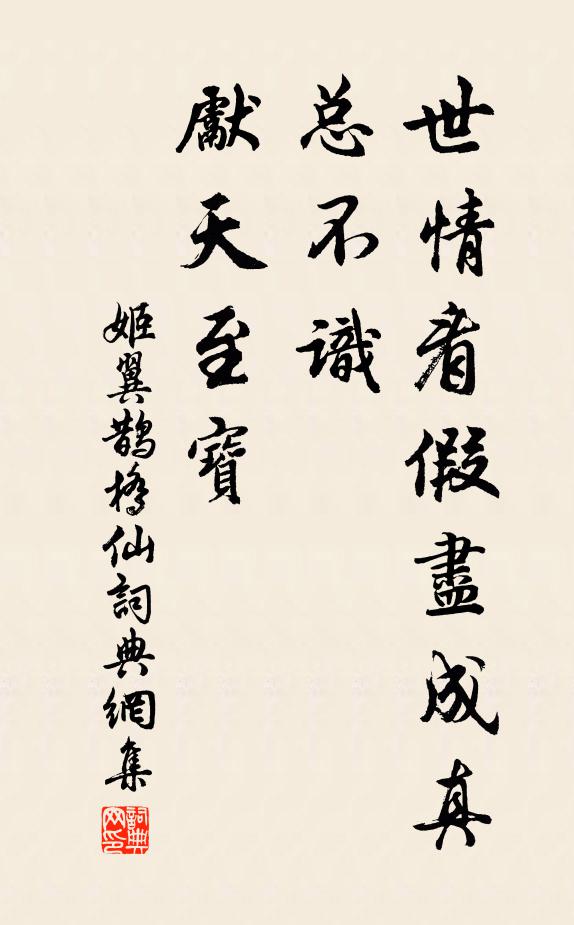 世情看假盡成真
总不識
獻天至寶
姬翼鵲橋仙詞典網集
詞典网印